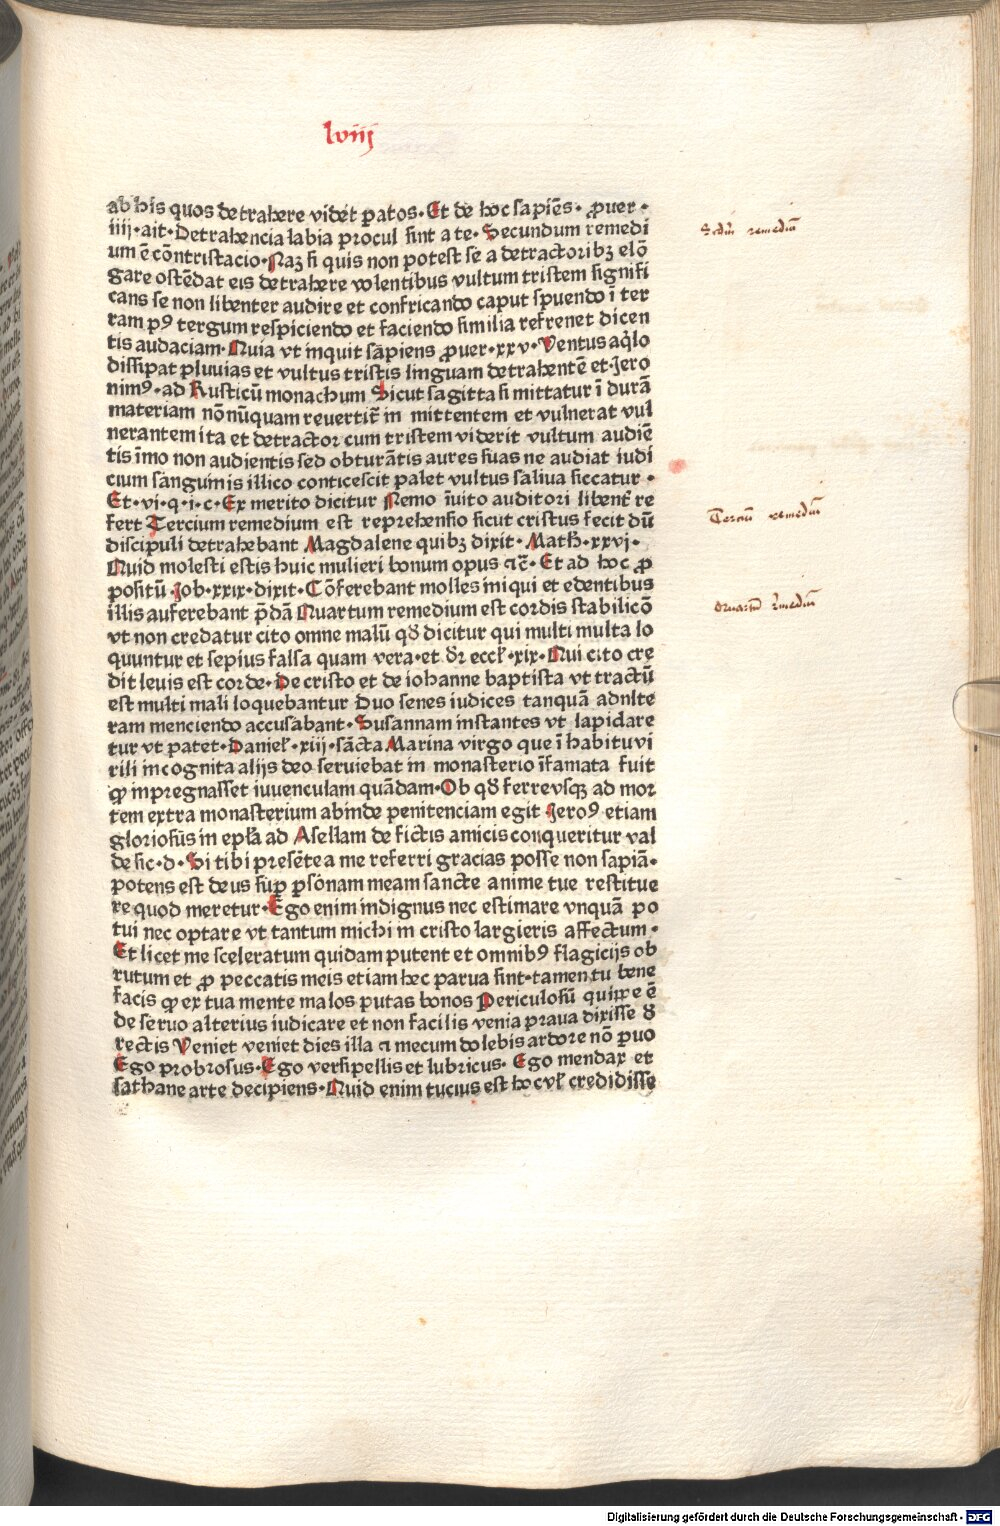 lviij
ab his quos detrahere videt̄ p̄atos· Et de hoc sapiēs· ꝓuer·
iiij·ait·Detrahencia labia procul sint a te· Secundum remedi
um ē cōntristacio·Naꝫ si quis non potest se a detractoribꝫ elō
gare ostēdat eis detrahere volentibus vultum tristem signifi
cans se non libenter audire et confricando caput spuendo ī ter
ram pꝰ tergum respiciendo et faciendo similia refrenet dicen
tis audaciam· Quia vt inquit sāpiens ꝓuer·xxv·Ventus aq̄lo
dissipat pluvias et vultus tristis linguam detrahentē et·Jero
nimꝰ·ad Rusticū monachum Sicut sagitta si mittatur ī durā
materiam nōnūquam revertit̄ in mittentem et vulnerat vul
nerantem ita et detractor cum tristem viderit vultum audiē
tis īmo non audientis sed obturātis aures suas ne audiat iudi
cium sanguinis illico conticescit palet vultus saliva siccatur·
Et·vi·q·i·c·Ex merito dicitur Nemo īuito auditori libent̄ re
fert Tercium remedium est reprehensio sicut cristus fecit dū
discipuli detrahebant Magdalene quibꝫ dixit·Math̄·xxvi·
Quid molesti estis huic mulieri bonum opus ⁊c̄·Et ad hoc ꝓ
positū·Job·xxix·dixit·Cōferebant molles iniqui et edentibus
illis auferebant p̄dā Quartum remedium est cordis stabilicō
vt non credatur cito omne malū qđ dicitur qui multi multa lo
quuntur et sepius falsa quam vera·et đr eccł·xix·Qui cito cre
dit levis est corde·De cristo et de iohanne baptista vt tractū
est multi mali loquebantur Duo senes iudices tanquā adulte
ram menciendo accusabant·Susannam instantes vt lapidare
tur vt patet·Danieł·xiij·sācta Marina virgo que ī habitu vi
rili incognita alijs deo serviebat in monasterio īfamata fuit
ꝙ inpregnasset iuvenculam quādam·Ob qđ ferrevsqꝫ ad mor
tem extra monasterium abinde penitenciam egit Jeroꝰ etiam
gloriosus in epła ad Asellam de fictis amicis conqueritur val
de sic·d·Si tibi presēte a me referri gracias posse non sapiā·
potens est deus suꝑ ꝑsōnam meam sancte anime tue restitue
re quod meretur·Ego enim indignus nec estimare vnquā po
tui nec optare vt tantum michi in cristo largieris affectum·
Et licet me sceleratum quidam putent et omnibꝰ flagicijs ob
rutum et ꝓ peccatis meis etiam hec parva sint·tamen tu bene
facis ꝙ ex tua mente malos putas bonos Periculosū quiꝑe ē
de servo alterius iudicare et non facilis venia prava dixisse đ
rectis Veniet veniet dies illa ⁊ mecum dolebis ardore nō p̄uo
Ego probrosus·Ego versipellis et lubricus· Ego mendax et
sathane arte decipiens·Quid enim tucius est hoc vł credidisse
Secdū remediū
Terciū remediū
Quartū remediū
Digitalisierung gefördert durch die Deutsche Forschungsgemeinschaft - DFG